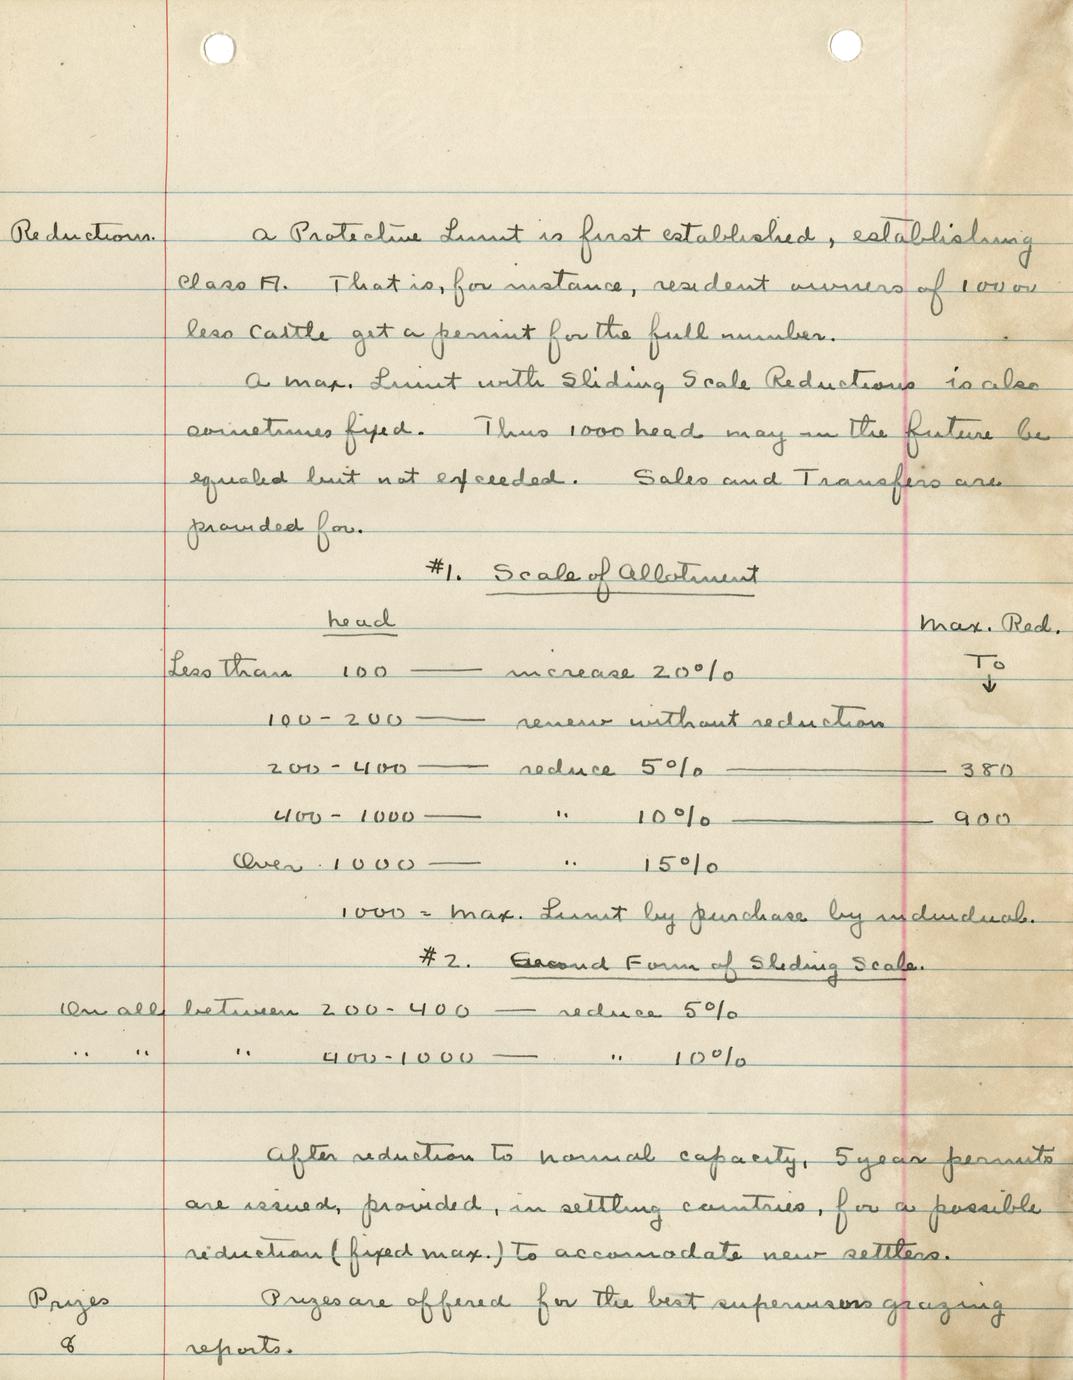 Reductions. A Protective Limit is first established, establishing
Class A. That is, for instance, resident owners of 100 or
less cattle get a permit for the full number.
A max. Limit with Sliding Scale Reductions is also
sometimes fixed. Thus 1000 head may in the future be
equaled but not exceeded. Sales and Transfers are
provided for.
#1. Scale of Allotment
head Max. Red.
Less than 100 — increase 20% To
↓
100 - 200 — renew without reduction
200 - 400 — reduce 5% — 380
400 - 1000 — " 10% — 900
Over 1000 — " 15%
1000 = Max. Limit by purchase by individual.
#2. Second Form of Sliding Scale.
On all between 200 - 400 — reduce 5%
" " " 400 - 1000 — " 10%
After reduction to normal capacity, 5 year permits
are issued, provided, in settling countries, for a possible
reduction (fixed max.) to accomodate new settlers.
Prizes Prizes are offered for the best supervisors grazing
8 reports.